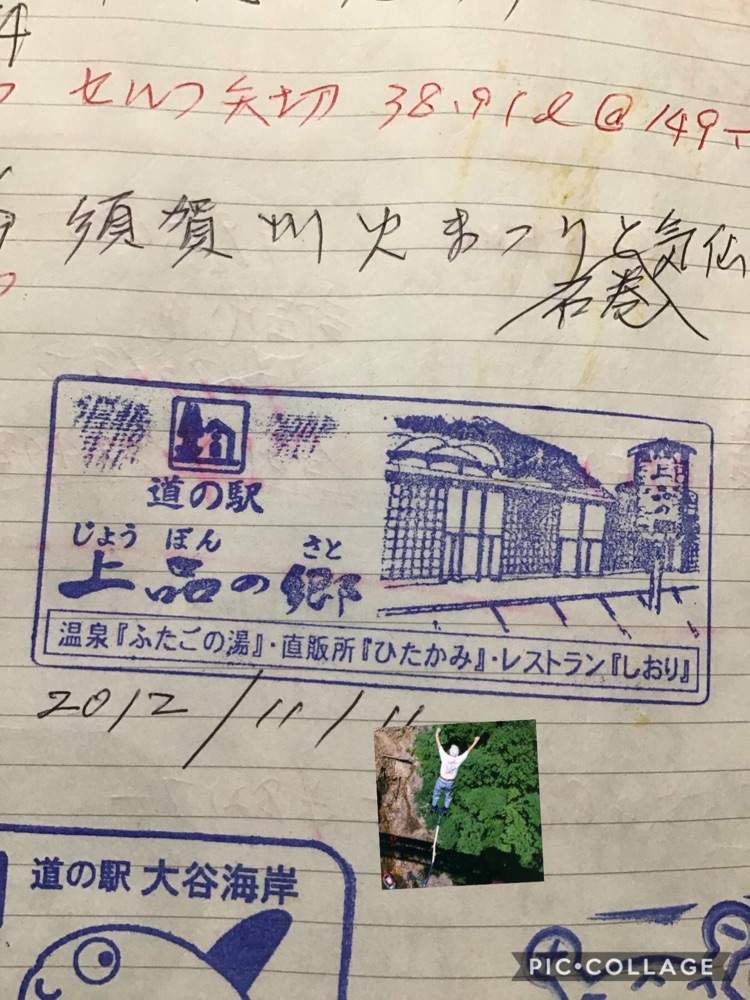 セルフ矢切 38.91ℓ @149
須賀川火まつりと気仙
石巻
道の駅
じょう ぼん さと
上品の郷
上品の
温泉『ふたごの湯』・直販所『ひたかみ』・レストラン『しおり』
2012/11/11
道の駅 大谷海岸
PIC•COLLAGE